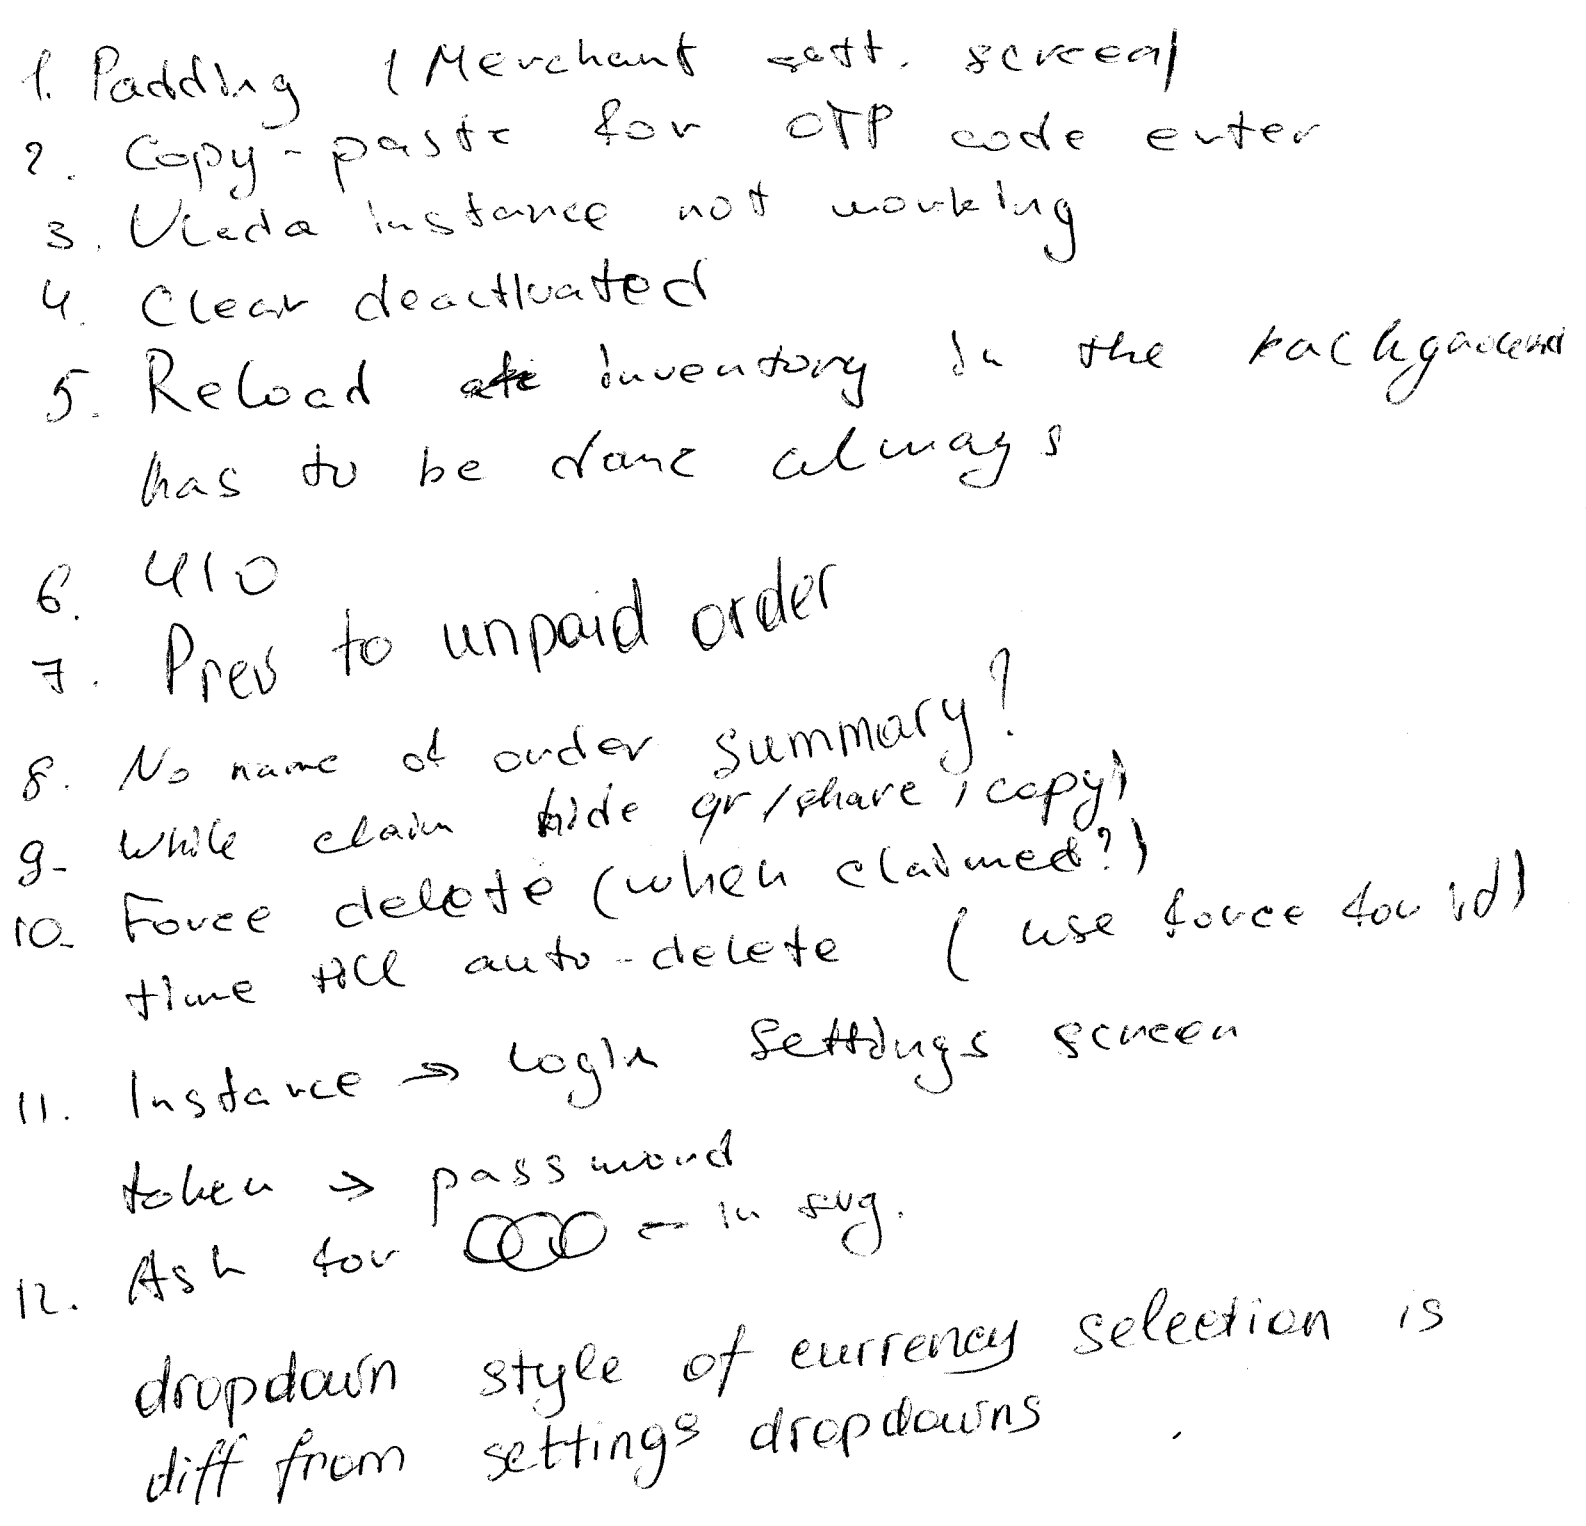 1. Padding (Merchant sett. screen)
2. Copy-paste for OTP code enter
3. Vlada instance not working
4. Clear deactivated
5. Reload inventory in the background
has to be done always
6. 410
7. Prev to unpaid order
8. No name of order summary?
9. While claim hide qr/share, copy)
10. Force delete (when claimed?)
time till auto-delete (use force for id)
11. Instance → Login Settings screen
token → password
12. Ask for ← in svg.
dropdown style of currency selection is
diff from settings dropdowns